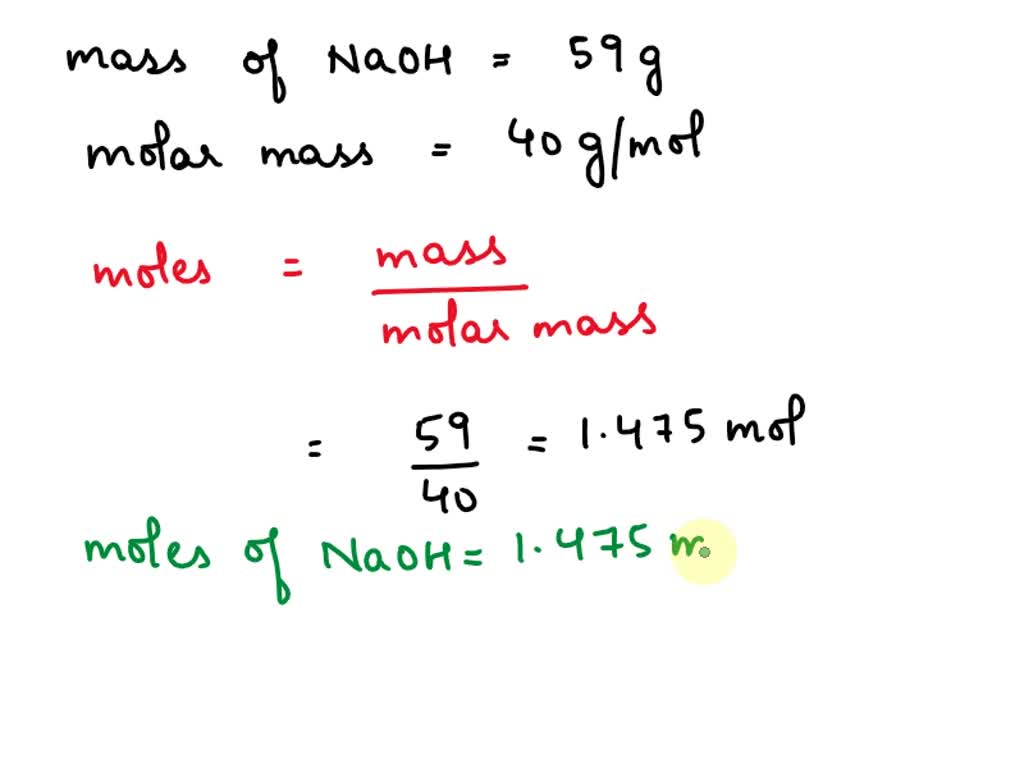 mass of NaOH = 59g
molar mass = 40 g/mol
moles = mass
molar mass
= 59 = 1.475 mol
40
moles of NaOH = 1.475 m